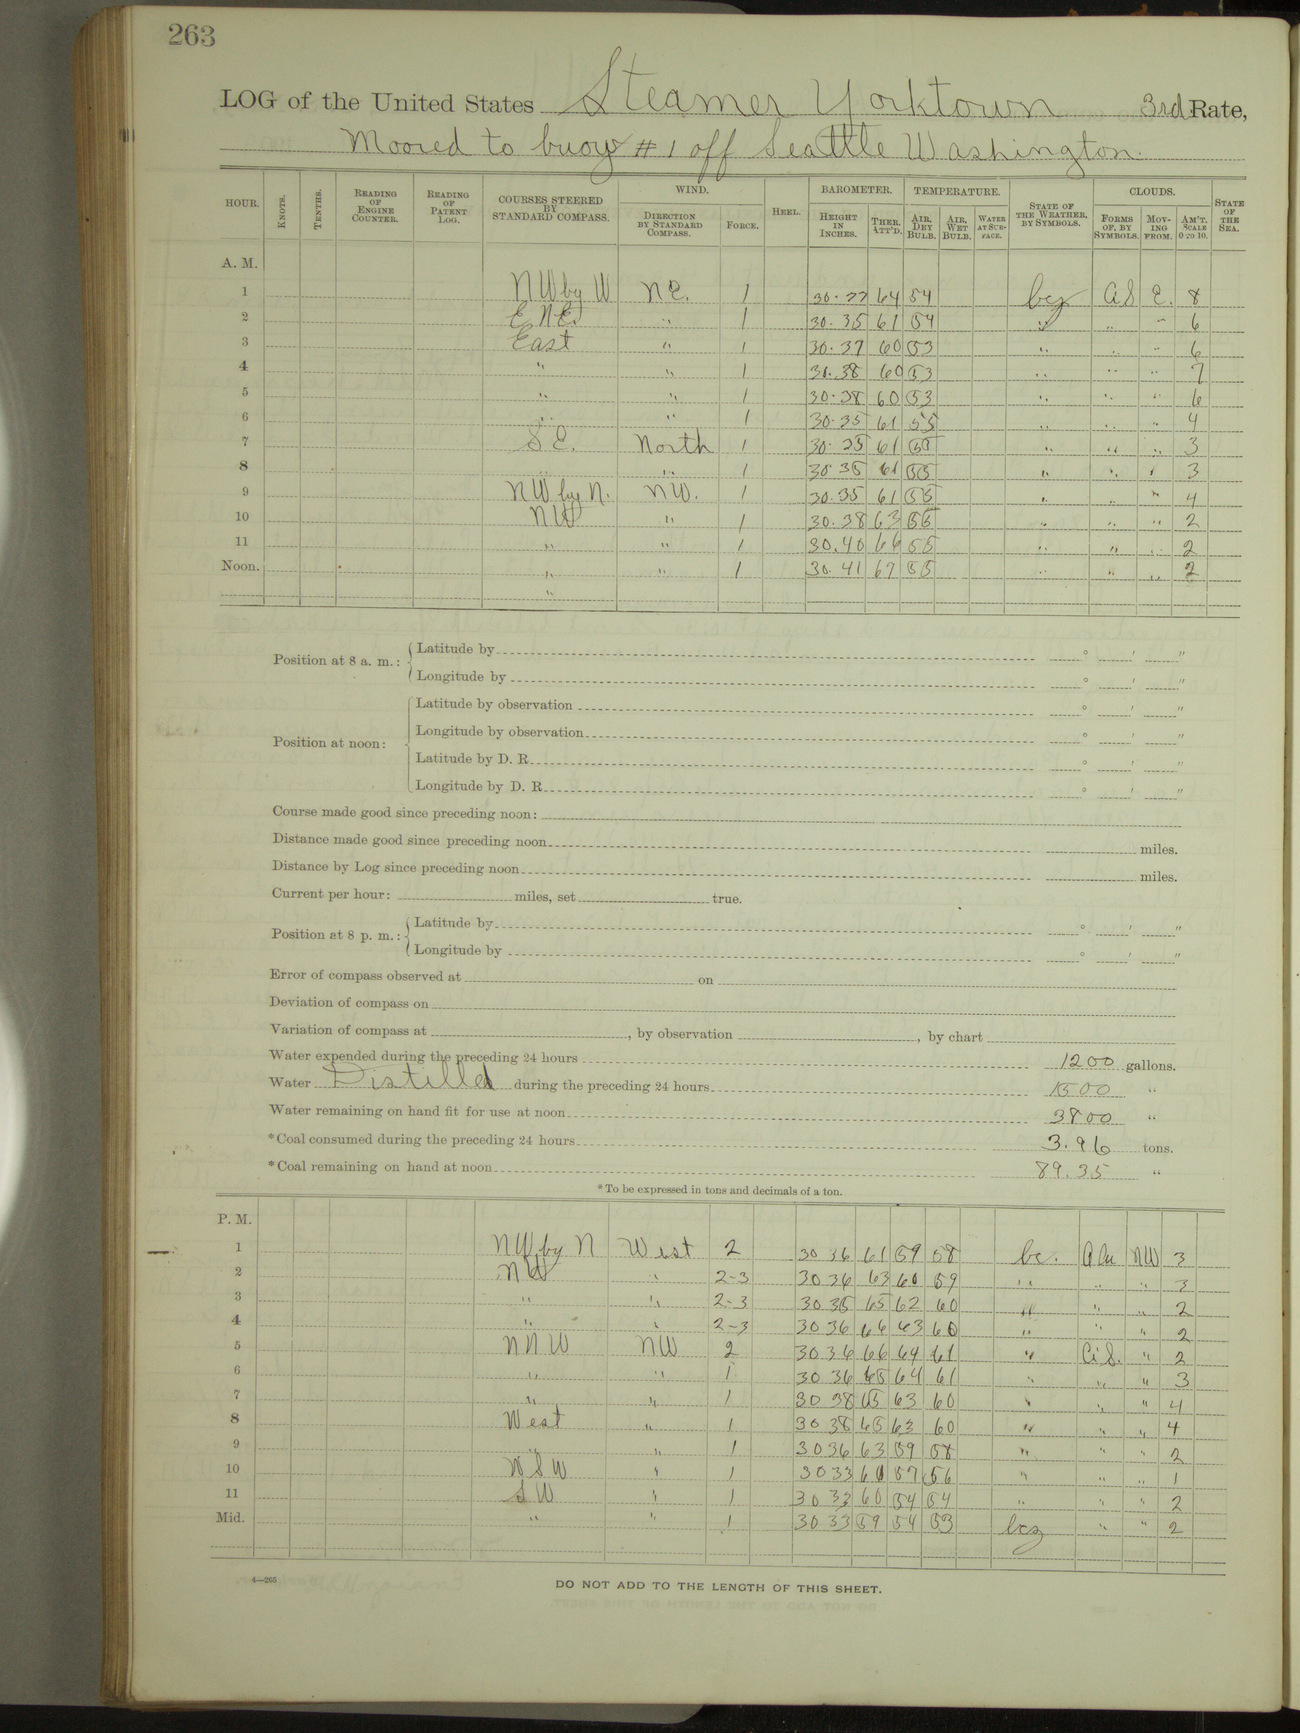 263
LOG of the United States Steamer Yorktown 3rd Rate,
Moored to buoy #1 off Seattle Washington.
HOUR. KNOTS. TENTHS. READING OF ENGINE COUNTER. READING OF PATENT LOG. COURSES STEERED BY STANDARD COMPASS. WIND. DIRECTION BY STANDARD COMPASS. FORCE. HEEL. BAROMETER. HEIGHT IN INCHES. THER. ATT'D. TEMPERATURE. AIR, DRY BULB. AIR, WET BULB. WATER AT SURFACE. STATE OF THE WEATHER, BY SYMBOLS. CLOUDS. FORMS OF, BY SYMBOLS. MOVING FROM. AM'T. SCALE 0 TO 10. STATE OF THE SEA.
A. M.
1 NW by W NE. 1 30.37 64 54 bcz CiS E. 8
2 ENE. " 1 30.35 61 54 " " " 6
3 East " 1 30.37 60 53 " " " 6
4 " " 1 30.38 60 53 " " " 7
5 " " 1 30.38 60 53 " " " 6
6 " " 1 30.35 61 55 " " " 4
7 S E. North 1 30.35 61 55 " " " 3
8 " " 1 30 35 61 55 " " " 3
9 NW by N. NW. 1 30.35 61 55 " " " 4
10 NW " 1 30.38 63 55 " " " 2
11 " " 1 30.40 66 55 " " " 2
Noon. " " 1 30.41 67 55 " " " 2
"
Position at 8 a. m.: Latitude by ° ' "
Longitude by ° ' "
Position at noon: Latitude by observation ° ' "
Longitude by observation ° ' "
Latitude by D. R. ° ' "
Longitude by D. R. ° ' "
Course made good since preceding noon:
Distance made good since preceding noon miles.
Distance by Log since preceding noon miles.
Current per hour: miles, set true.
Position at 8 p. m.: Latitude by ° ' "
Longitude by ° ' "
Error of compass observed at on
Deviation of compass on
Variation of compass at , by observation , by chart
Water expended during the preceding 24 hours 1200 gallons.
Water Distilled during the preceding 24 hours 1500 "
Water remaining on hand fit for use at noon 3800 "
*Coal consumed during the preceding 24 hours 3.96 tons.
*Coal remaining on hand at noon 89.35 "
*To be expressed in tons and decimals of a ton.
P. M.
1 NW by N West 2 30 36 61 59 58 bc. ACu NW 3
2 NW " 2-3 30 36 63 60 59 " " " 3
3 " " 2-3 30 35 65 62 60 " " " 2
4 " " 2-3 30 36 66 63 60 " " " 2
5 NNW NW 2 30 36 66 64 61 " CiS. " 2
6 " " 1 30 36 65 64 61 " " " 3
7 " " 1 30 38 65 63 60 " " " 4
8 West " 1 30 38 65 63 60 " " " 4
9 " " 1 30 36 63 59 58 " " " 2
10 WSW " 1 30 33 60 57 56 " " " 1
11 SW " 1 30 33 60 54 54 " " " 2
Mid. " " 1 30 33 59 54 53 bcz " " 2
4—265
DO NOT ADD TO THE LENGTH OF THIS SHEET.